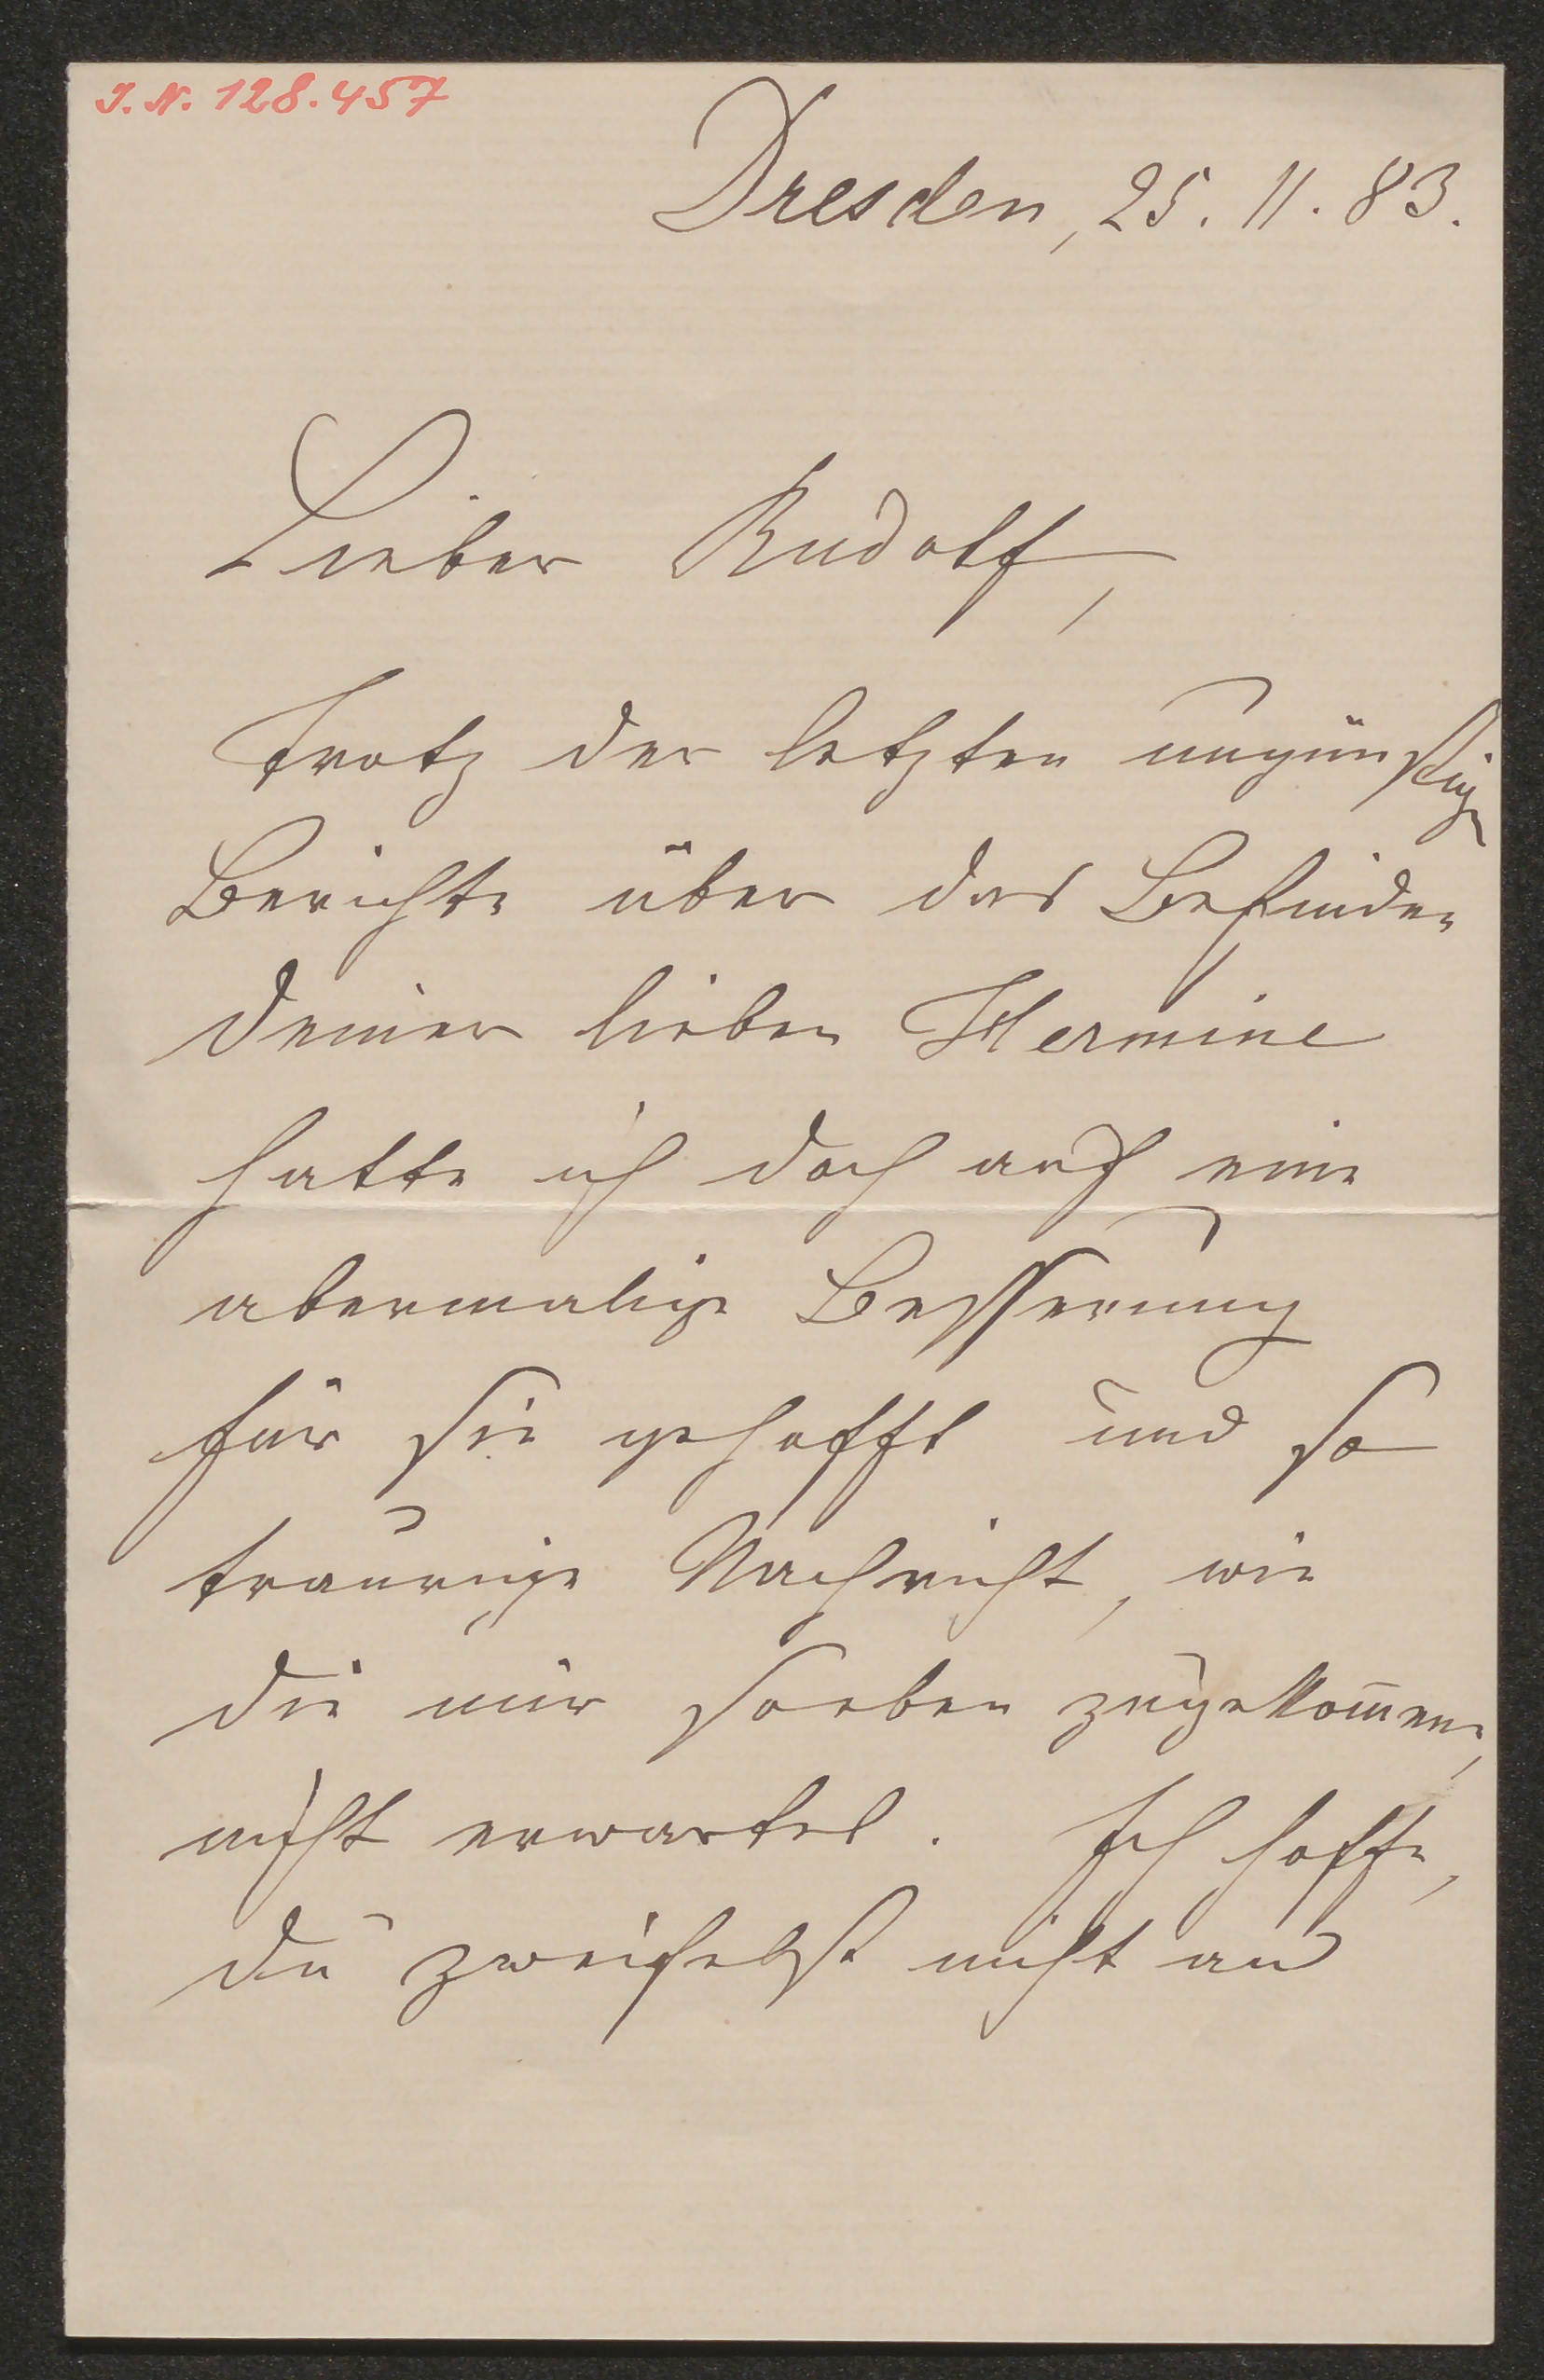 J. N. 128.457
Dresden, 25. 11. 83.
Lieber Rudolf,
Trotz der letzten ungünstigen
Berichte über das Befinden
deiner lieben Hermine
hatte ich doch auf eine
abermalige Besserung
für sie gehofft und so
traurige Nachricht, wie
die mir soeben zugekom̅ene,
nicht erwartet. Ich hoffe,
du zweifelst nicht an